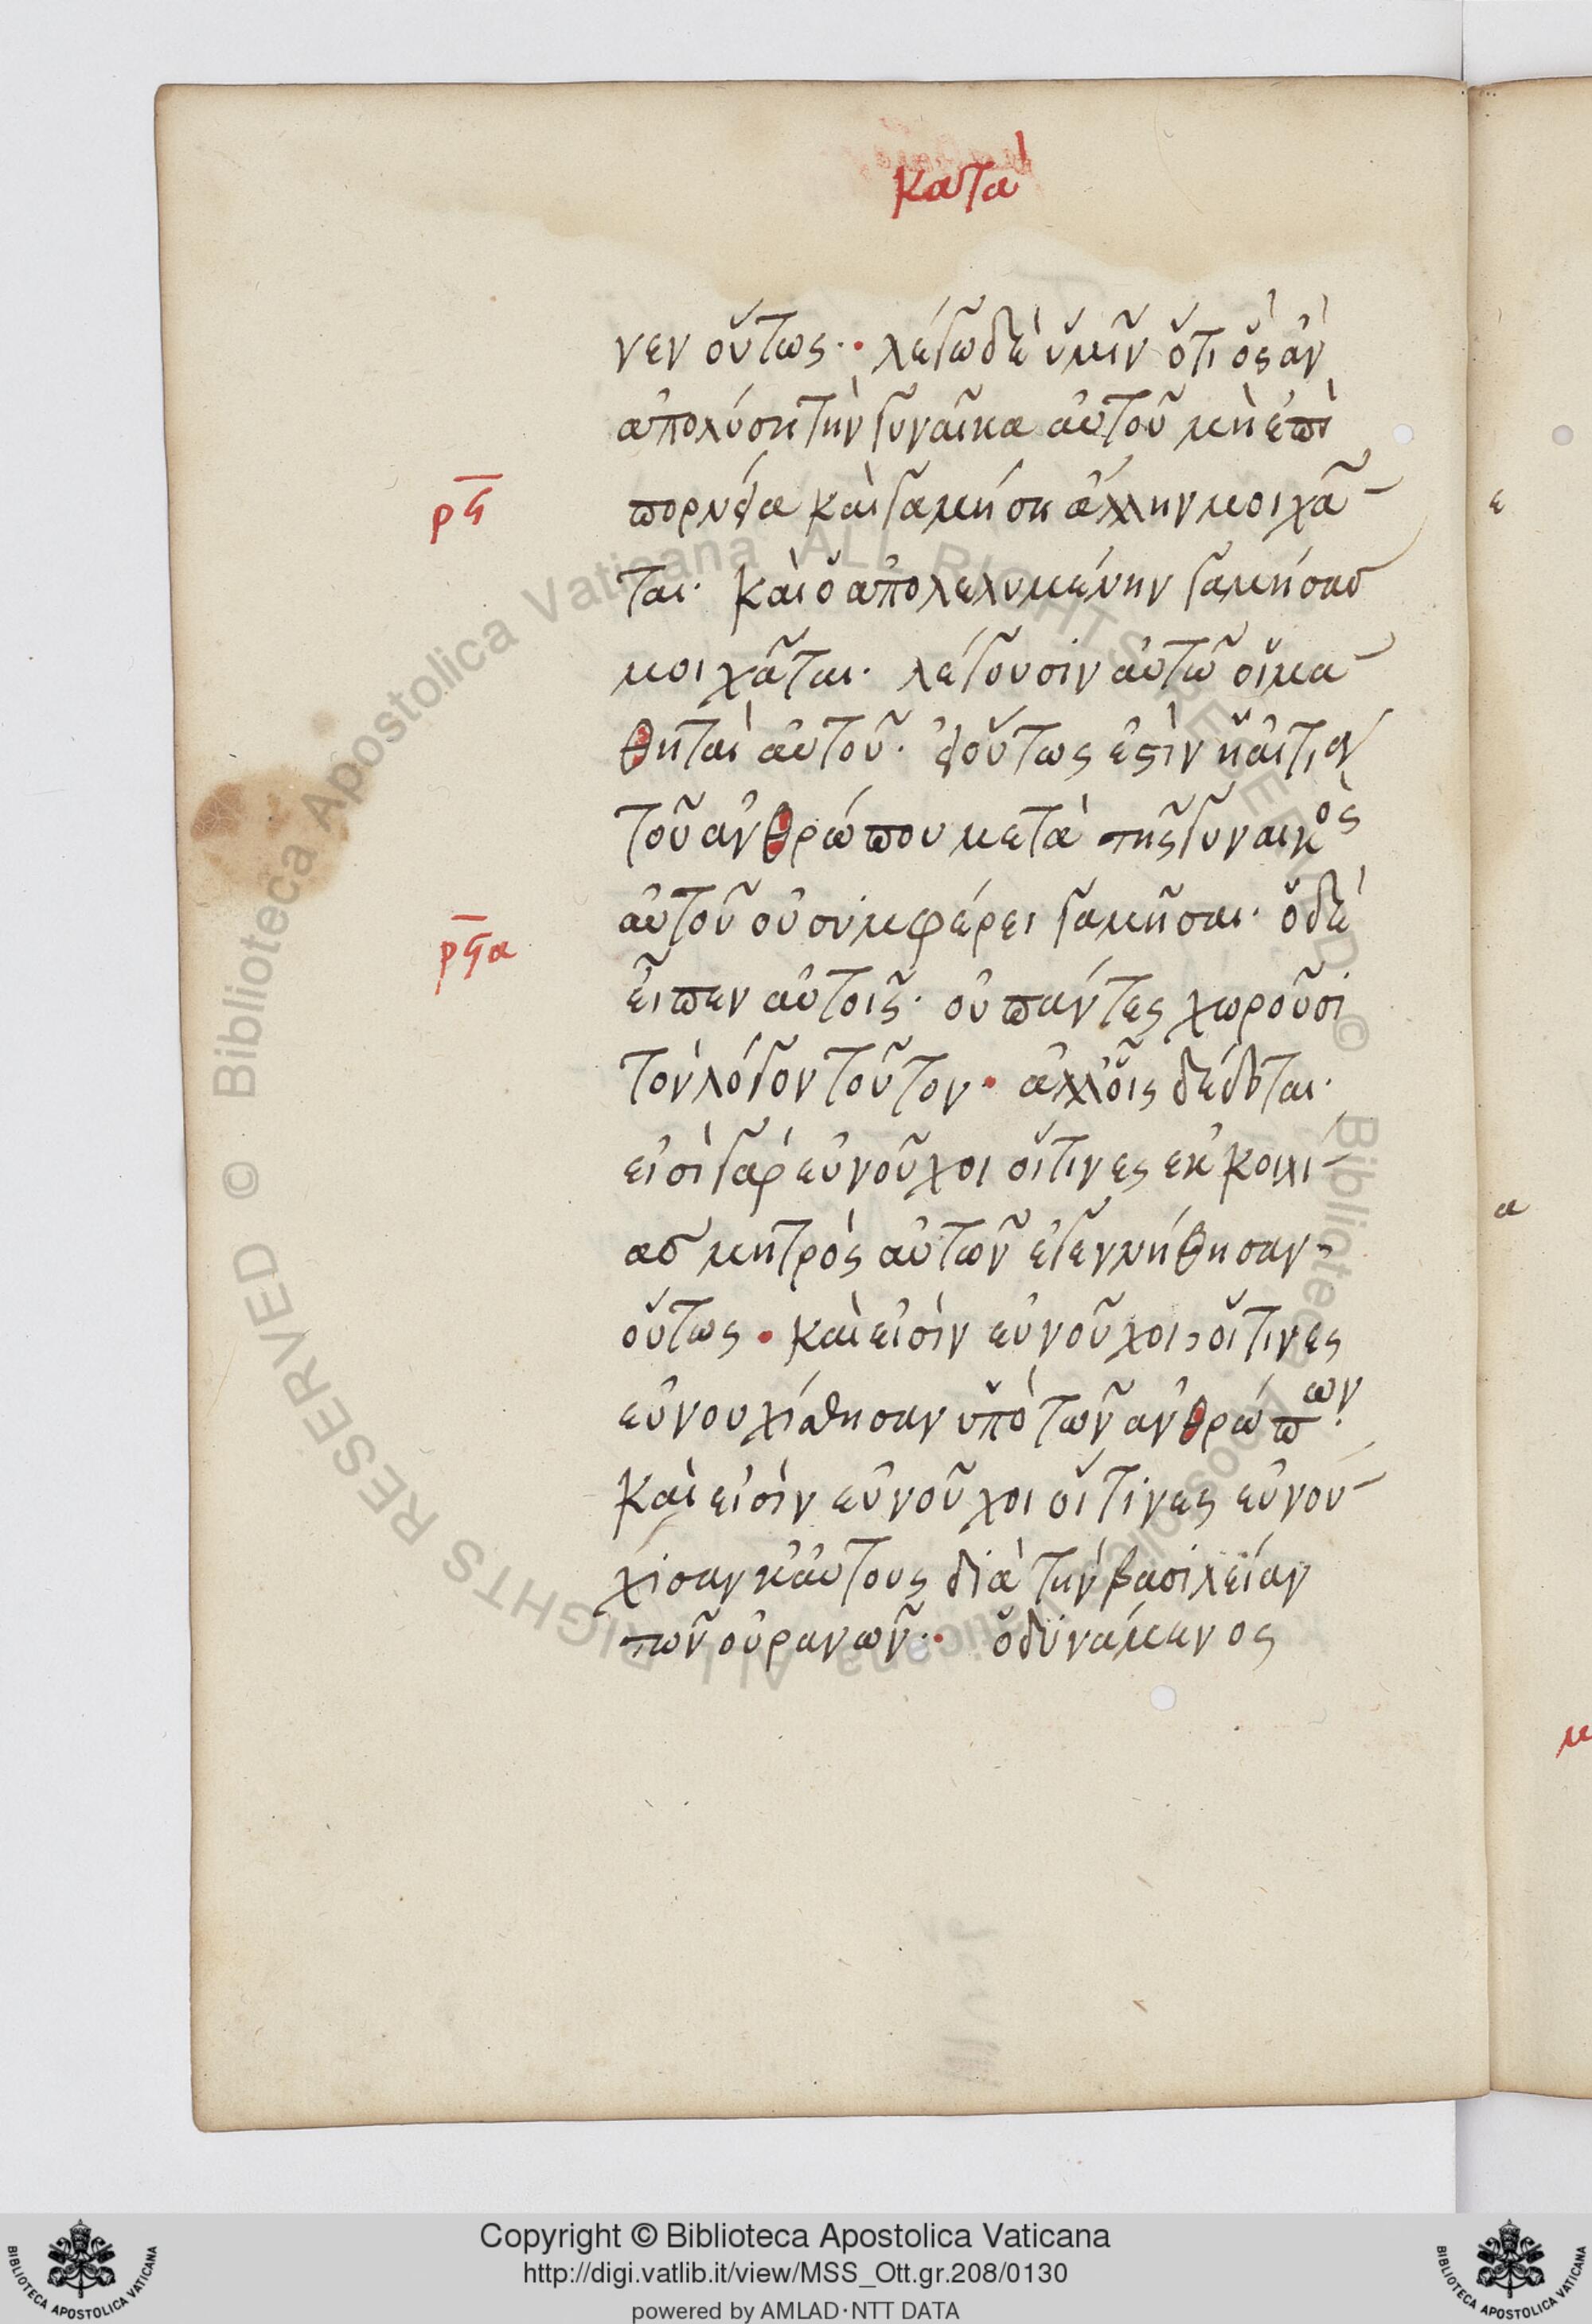 κατὰ
νεν οὕτως· λέγω δὲ ὑμῖν ὅτι ὃς ἀν
ἀπολύση τὴν γυναῖκα αὐτοῦ μὴ ἐπὶ
ρϟ
πορνεία καὶ γαμήση ἄλλην μοιχᾶ
ται· καὶ ὁ ἀπολελυμένην γαμήσας
μοιχᾶται· λέγουσιν αὐτῶ οἱ μα
θηταὶ αὐτοῦ· εἰ οὕτως ἐστὶν ἡ αἰτία
τοῦ ἀνθρώπου μετὰ τῆς γυναικὸς
αὐτοῦ οὐ συμφέρει γαμῆσαι· ὁ δὲ
ρϟα
εἶπεν αὐτοῖς· οὐ πάντες χωροῦσι
τὸν λόγον τοῦτον· ἀλλ' οἷς δέδοται·
εἰσὶ γὰρ εὐνοῦχοι οἵτινες ἐκ κοιλί
ας μητρὸς αὐτῶν ἐγεννήθησαν
οὕτως· καὶ εἰσὶν εὐνοῦχοι, οἵτινες
εὐνουχίσθησαν ὑπὸ τῶν ἀνθρώπων·
καὶ εἰσὶν εὐνοῦχοι οἵτινες εὐνού
χισαν ἑαὐτους διὰ τὴν βασιλείαν
τῶν οὐρανῶν· ὁ δυνάμενος
Copyright © Biblioteca Apostolica Vaticana
http://digi.vatlib.it/view/MSS_Ott.gr.208/0130
powered by AMLAD·NTT DATA
© Biblioteca Apostolica Vaticana ALL RIGHTS RESERVED
© Biblioteca Apostolica Vaticana ALL RIGHTS RESERVED
BIBLIOTECA APOSTOLICA VATICANA
BIBLIOTECA APOSTOLICA VATICANA